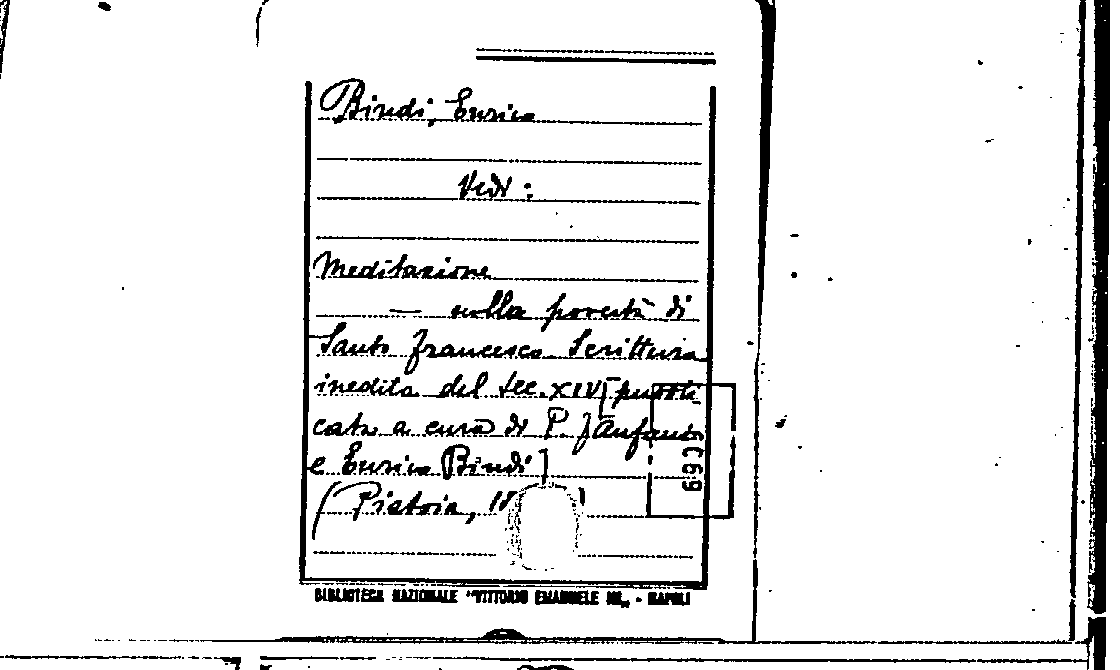 Bindi, Enrico
Vedi:
Meditazione
— sulla povertà di
Santo Francesco. Scrittura
inedita del sec. XIV [pubbli
cata a cura di P. Fanfani
e Enrico Bindi]
(Pistoia, 18
BIBLIOTECA NAZIONALE "VITTORIO EMANUELE III" - NAPOLI